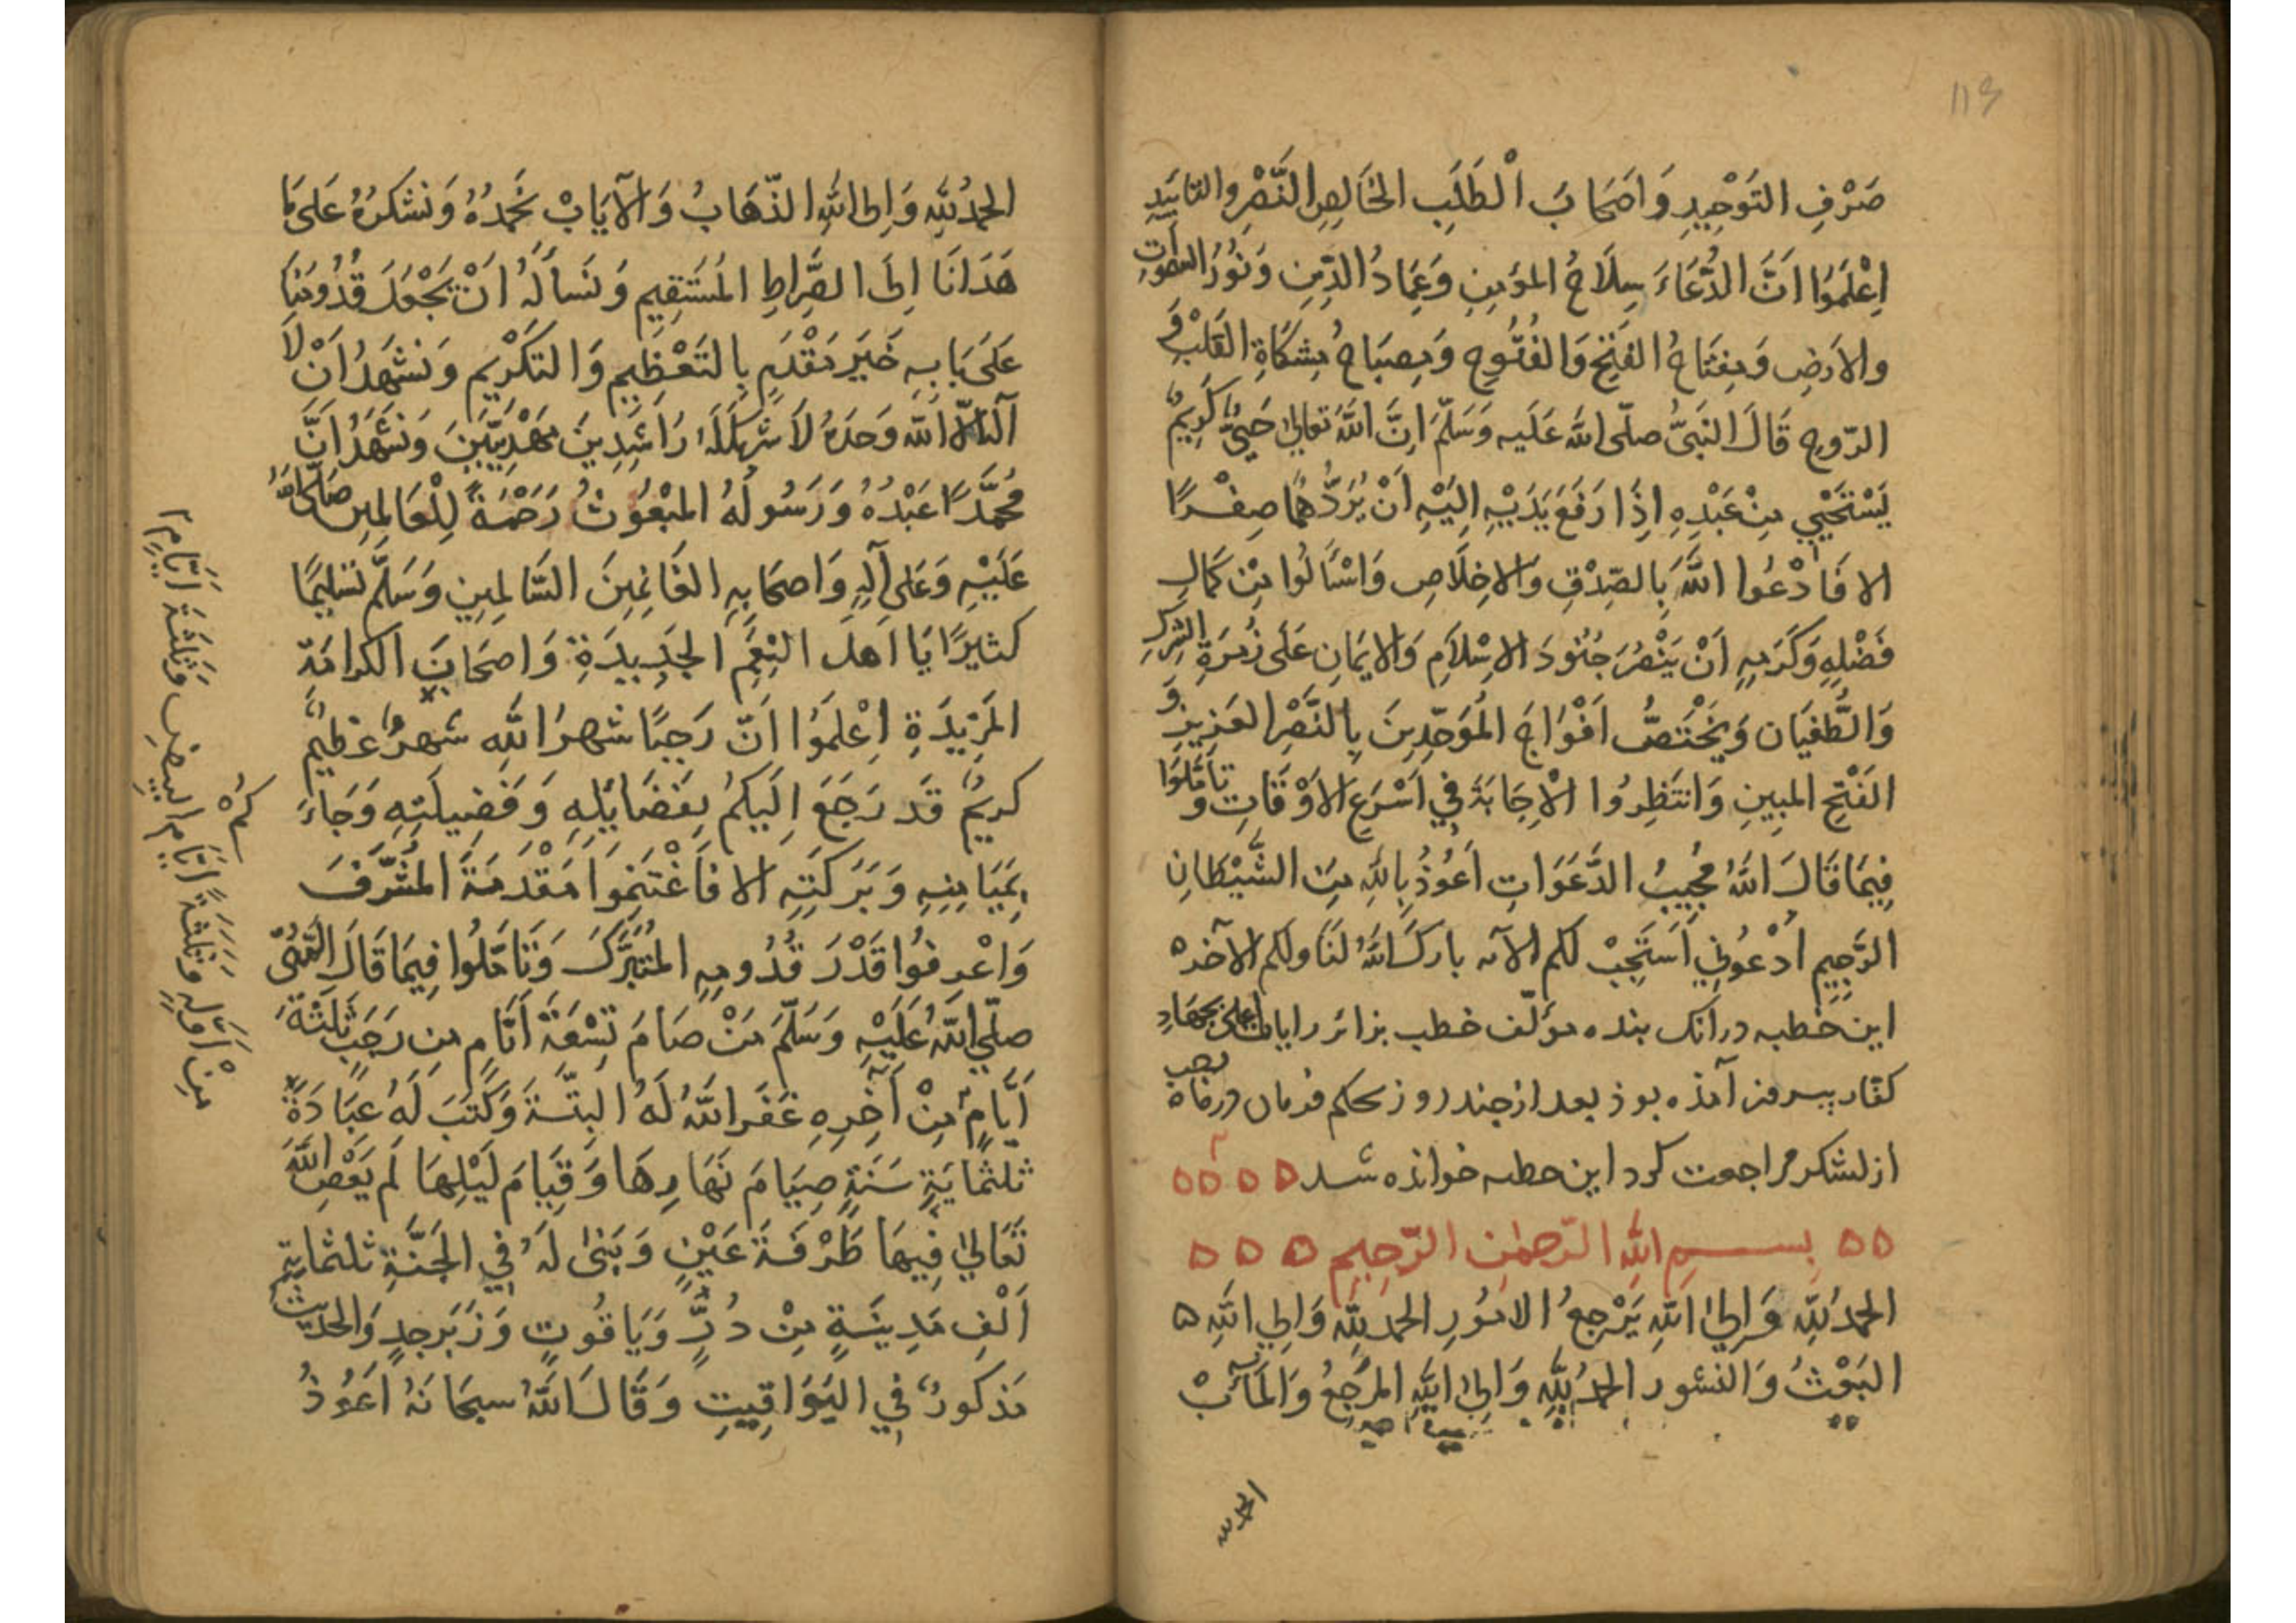 113
صَرْفِ التَوْحِيدِ وَاَصْحَابَ الْطَلَبِ الخَالِصِ النَّصْرِ والتاييدِ
اِعْلَمَوُا اَنَّ الدُّعَاءَ سِلَاحُ المؤمِنِ وَعِمَادُ الدِّينِ وَنُورُ السموَاتِ
والاَرضِ وَمِفتَاحُ الفَتحِ وَالفُتُوحِ وَمِصبَاحُ مِشكَاةِ القَلبِ وَ
الرّوحِ قَالَ النَبىُّ صلّى اللّه عَلَيه وَسَلّمَ اِنَّ اللّهَ تعالىٰ حَيىٌّ كَرِيمٌ
يَسْتَحْيِي مِنْ عَبْدِهِ اِذَا رَفَعَ يَدَيْهِ اِلَيْهِ اَنْ يَرُدَّهُمَا صِفْرًا
الا فَادْعُوا اللّهَ بِالصّدْقِ وَالاخِلَاصِ وَاسْأَلُوا مِنْ كَمَالِ
فَضْلِهِ وَكَرَمِهِ اَنْ يَنْصُرَ جُنُودَ الاِسْلَامِ وَالايمَانِ عَلَى زُمرَةِ الشِركِ
وَالطُّغيَان وَيَخْتَصُّ اَفْوَاجَ المُوَحّدِينَ بِالنَّصْرِ العَزِيزِ وَ
الفَتْحِ المبِينِ وَانتَظِرُوا الْاِجَابَةَ فِي اَسْرَعِ الاَوْقَاتِ وَ تأمَّلُوا
فِيمَا قَالَ اللّهُ مُجِيبُ الدَّعَوَاتِ اَعُوْذُ بِاللّهِ مِنَ الشَّيْطَانِ
الرَّجِيمِ اُدْعُونِي اَسْتَجِبْ لكم الآيه باركَ اللّهُ لنَا ولكم الآخره
اين خطبه در انك بنده مؤلّف خطب بزائر رايات اعلى بجهادِ
كفّار بيرمز آمذه بوذ بعد از چند روز بحكم فرمان در ماه رجب
از لشكر مراجعت كرد اين خطبه خوانذه شد
بسم اللّهِ الرّحمٰن الرّحِيمِ
الحمدُ للّهِ وَاِلىٰ اللّهِ يَرْجِعُ الامُورِ الحمد للّهِ وَاِلي اللّهِ
البَعْثُ وَالنشور الحمدُ للّهِ وَاِلىٰ اللّهِ المرْجِعُ وَالمَآبْ
الحمد للّه
الحمدُ للّهِ وَاِلى اللّهِ الذّهَابُ وَالاَيَابْ نَحْمَدُهُ وَنشكرُهُ عَلى مَا
هَدَانَا اِلَى الصِّراطِ المُستَقِيمِ وَنَسألُهُ اَنْ يَجْعَلَ قُدُومَنَا
عَلىَ بَابِهِ خَيَر مَقْدَمٍ بِالتَعْظِيمِ وَالتكَرْيمِ وَنشهَدُ اَنْ لَا
آلهَ اِلّا اللّه وَحدَهُ لاَ شَرِيكَ لَهُ رَاشِدِينَ مَهْدِيّيَنَ وَنشَهَدُ اَنَّ
مُحمَّدًا عَبْدُهُ وَرَسُولُهُ المبْعُوثُ رَحْمَةً لِلْعَالمِينَ صَلّى اللّهُ
عَلَيْهِ وَعَلى آلِهِ وَاَصحَابِهِ الغَانِمِينَ السّالمِينِ وَسَلّمَ تَسليمًا
كثيرًا يَا اَهلَ النِعَمِ الجَدِيدَةِ وَاَصحَابَ الكرامَة
المَزِيدَةِ اِعْلَمَوُا اَنّ رَجَبًا شهرُ اللّهِ شهرٌ عَظِيمٌ
كريمٌ قَد رَجَعَ اِلَيكمُ بفَضَايلِهِ وَفَضِيلَتِهِ وَجَاءَكمُ
بِمَيَامِنِهِ وَبَرَكَتِهِ الا فَاغْتَنِموُا مَقْدَمَهَ المشَرّفَ
وَاعْرِفُوا قَدْرَ قُدُومِهِ المتبَرّكَ وَتَامّلُوا فِيمَا قَالَ النّبىُّ
صلّي اللّهُ عَلَيْهِ وَسَلّمَ مَنْ صَامَ تِسْعَةَ اَيّامٍ مِن رَجَبٍ ثَلثَةَ
اَيّامٍ مِنْ آخِرِهِ غفَر اللّهُ لَهُ البتّةَ وَكَتبَ لَهُ عبَادَةَ
ثلثمايَةِ سَنَةٍ صِيَامَ نَهَارِهَا وَقِيَامَ لَيْلِهَا لَم يَعْصِ اللّهَ
تَعَاليٰ فِيهَا طَرْفَةَ عَيْنٍ وَبَنىٰ لَهُ فِي الجَنّةِ ثلثمايةِ
اَلْفِ مَدِينَةٍ مِنْ دُرٍّ وَيَاقُوتٍ وَزَبَرجدٍ وَالحَديث
مَذكورٌ فِي اليَوَاقِيتِ وَقَالَ اللّهُ سبحَانَهُ اَعُوْذُ
مِنْ اَوّلِهِ وَثلثَةَ اَيّامِ البِيضِ وَثلَثَةَ اَيّامٍ